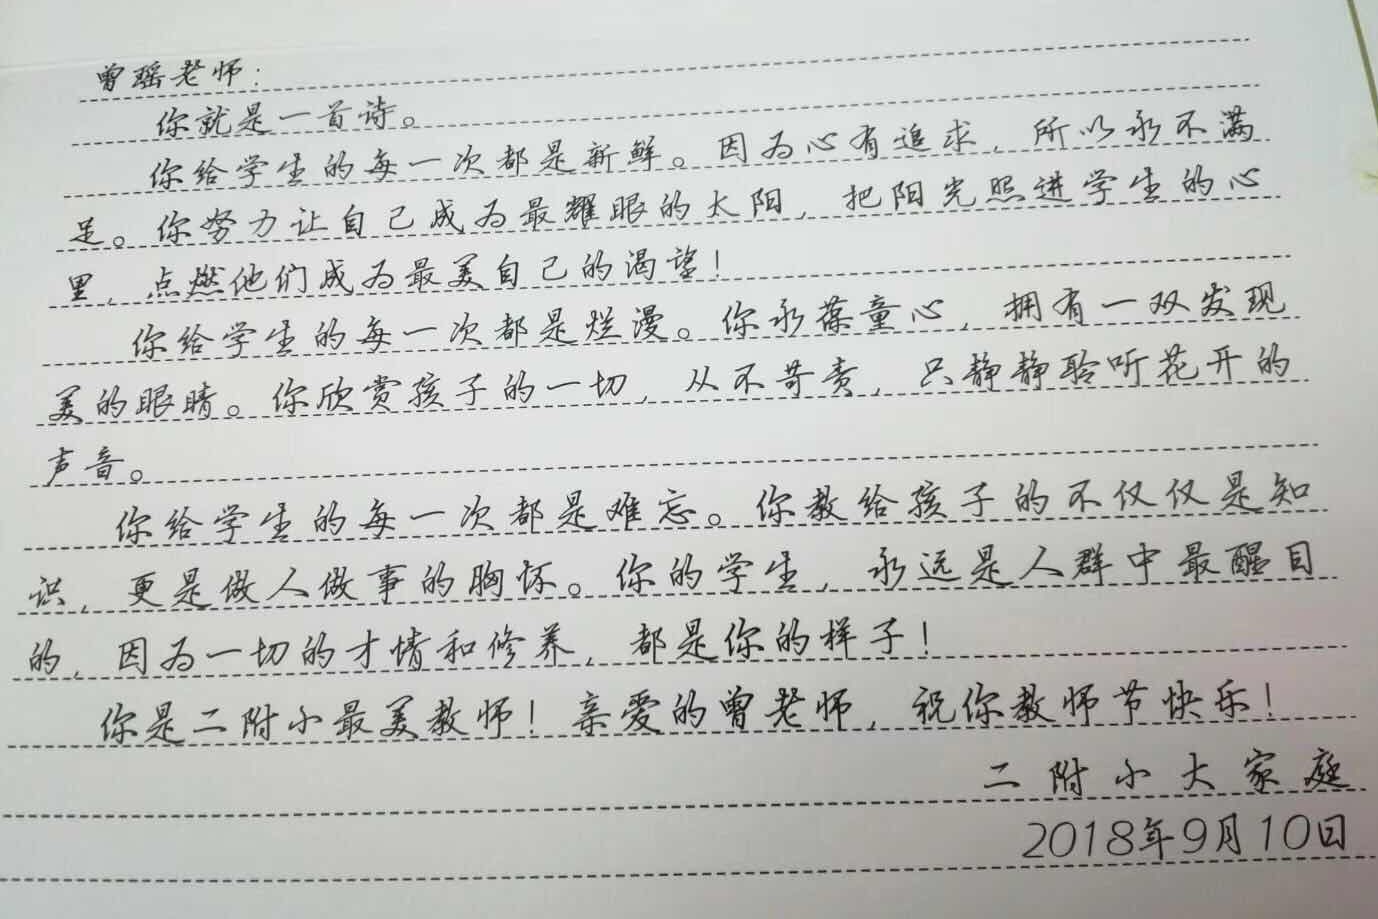 曾瑶老师：
你就是一首诗。
你给学生的每一次都是新鲜。因为心有追求，所以永不满
足。你努力让自己成为最耀眼的太阳，把阳光照进学生的心
里，点燃他们成为最美自己的渴望！
你给学生的每一次都是烂漫。你永葆童心，拥有一双发现
美的眼睛。你欣赏孩子的一切，从不苛责，只静静聆听花开的
声音。
你给学生的每一次都是难忘。你教给孩子的不仅仅是知
识，更是做人做事的胸怀。你的学生，永远是人群中最醒目
的，因为一切的才情和修养，都是你的样子！
你是二附小最美教师！亲爱的曾老师，祝你教师节快乐！
二附小大家庭
2018年9月10日